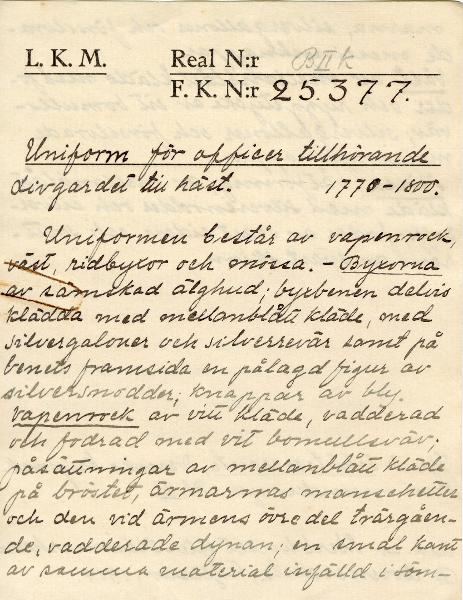 L. K. M. Real N:r BIIk
F. K. N:r 25377.
Uniform för officer tillhörande
Livgardet till häst. 1770-1800.
Uniformen består av vapenrock,
väst, ridbyxor och mössa. - Byxorna
av sämskad älghud; byxbenen delvis
klädda med mellanblått kläde, med
silvergaloner och silverrevär samt på
benets framsida en pålagd figur av
silversnodder; knappar av bly.
Vapenrock av vitt kläde, vadderad
och fodrad med vit bomullsväv;
påsättningar av mellanblått kläde
på bröstet, ärmarnas manschetter
och den vid ärmens övre del tvärgåen-
de, vadderade dynan; en smal kant
av samma material infälld i söm-